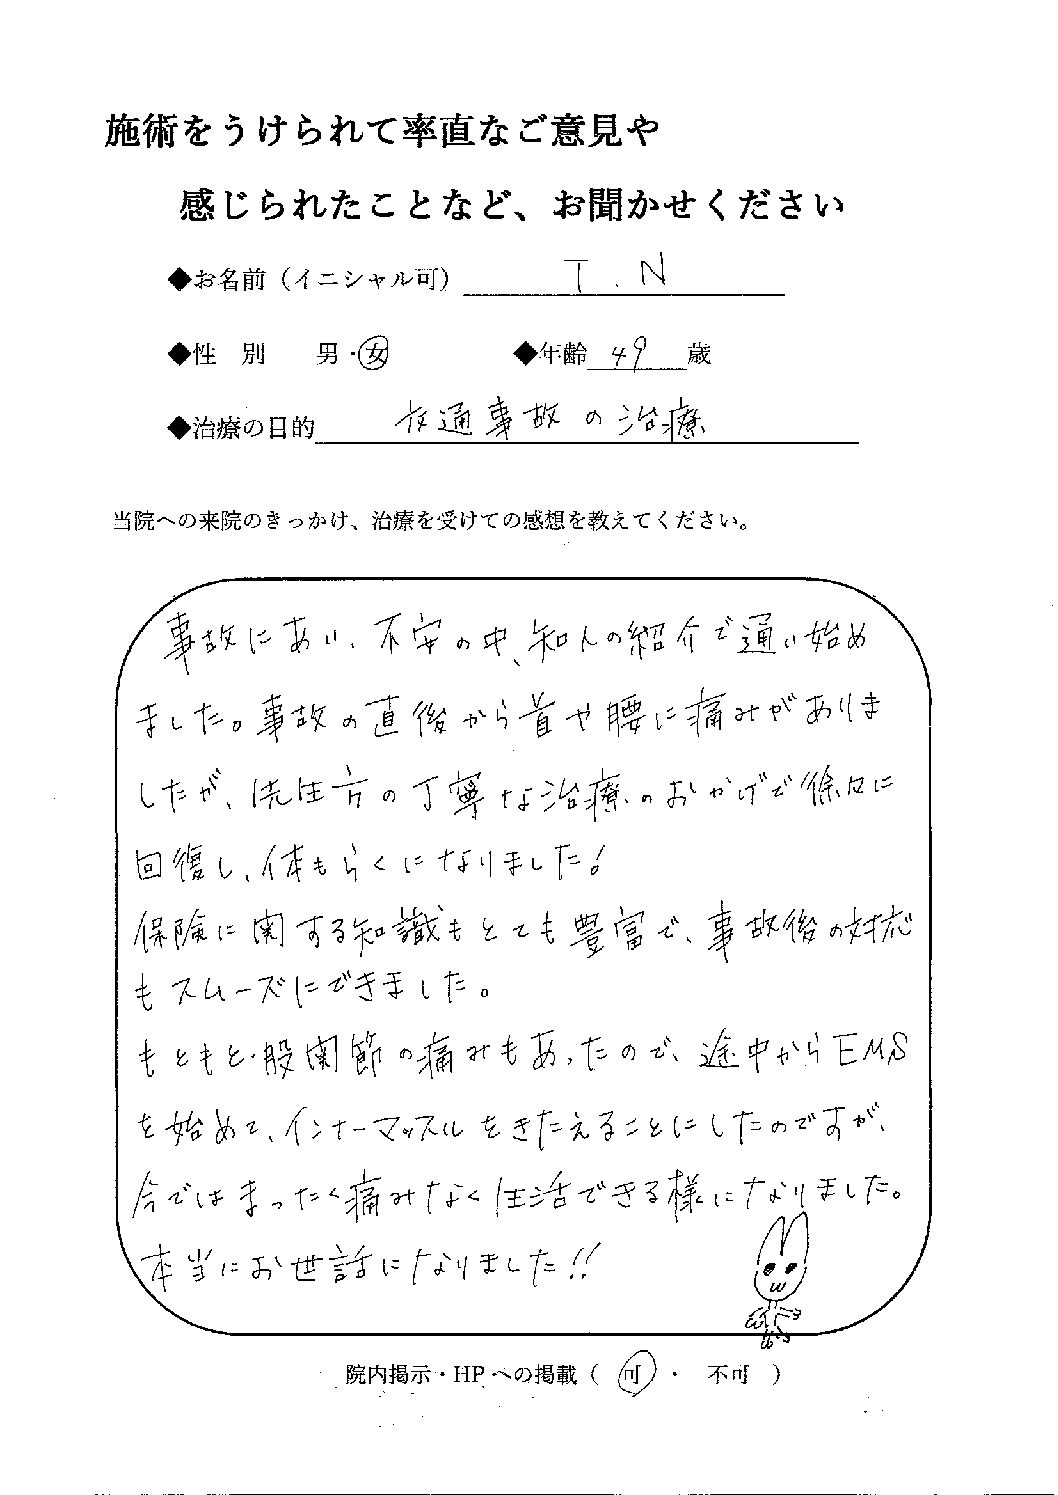 施術をうけられて率直なご意見や
感じられたことなど、お聞かせください
◆お名前（イニシャル可） T.N
◆性 別 男・女 ◆年齢 49 歳
◆治療の目的 交通事故の治療
当院への来院のきっかけ、治療を受けての感想を教えてください。
事故にあい、不安の中、知人の紹介で通い始め
ました。事故の直後から首や腰に痛みがありま
したが、先生方の丁寧な治療のおかげで徐々に
回復し、体もらくになりました!
保険に関する知識もとても豊富で、事故後の対応
もスムーズにできました。
もともと股関節の痛みもあったので、途中からEMS
を始めて、インナーマッスルをきたえることにしたのですが、
今ではまったく痛みなく生活できる様になりました。
本当にお世話になりました!!
院内掲示・HPへの掲載（ 可 ・ 不可 ）